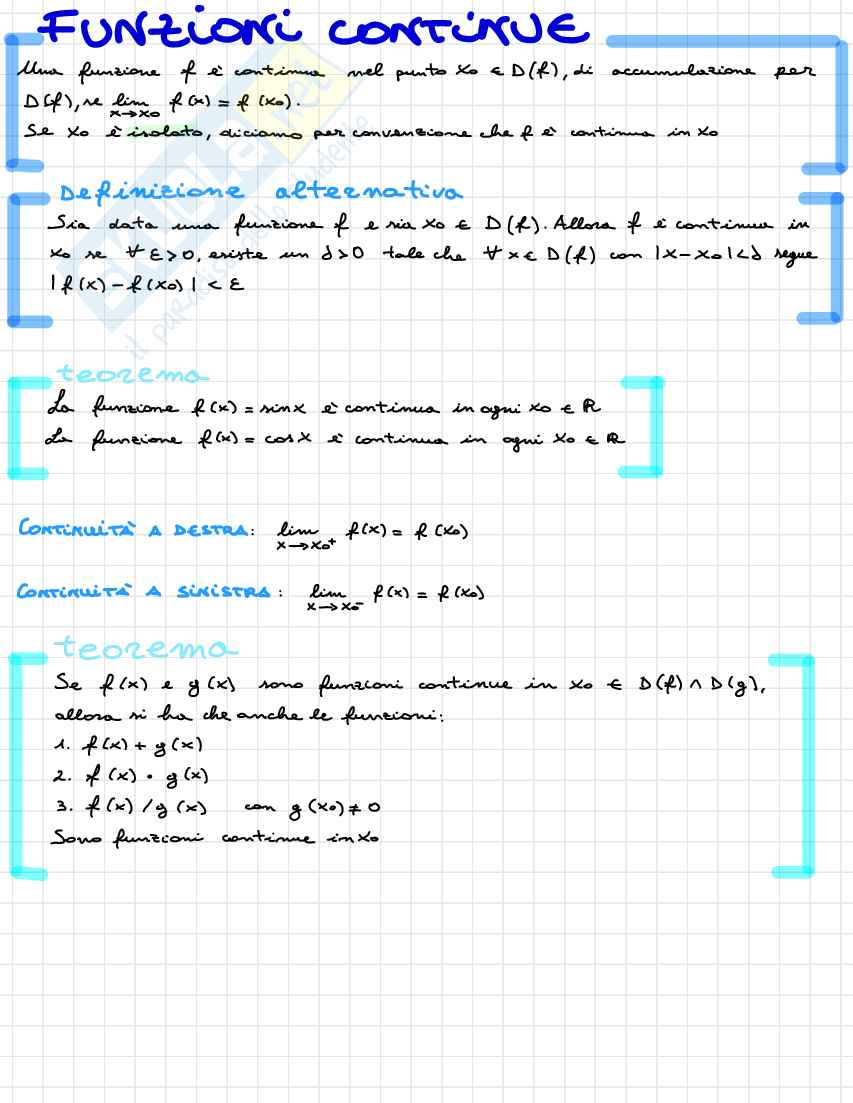 FUNZIONI CONTINUE
Una funzione f è continua nel punto x₀ ∈ D(f), di accumulazione per
D(f), se lim x→x₀ f(x) = f(x₀).
Se x₀ è isolato, diciamo per convenzione che f è continua in x₀
Definizione alternativa
Sia data una funzione f e sia x₀ ∈ D(f). Allora f è continua in
x₀ se ∀ ε>0, esiste un δ>0 tale che ∀ x ∈ D(f) con |x-x₀|<δ segue
|f(x)-f(x₀)| < ε
teorema
La funzione f(x) = sinx è continua in ogni x₀ ∈ ℝ
La funzione f(x) = cosx è continua in ogni x₀ ∈ ℝ
CONTINUITÀ A DESTRA: lim x→x₀⁺ f(x) = f(x₀)
CONTINUITÀ A SINISTRA: lim x→x₀⁻ f(x) = f(x₀)
teorema
Se f(x) e g(x) sono funzioni continue in x₀ ∈ D(f) ∧ D(g),
allora si ha che anche le funzioni:
1. f(x) + g(x)
2. f(x) • g(x)
3. f(x) /g(x) con g(x₀) ≠ 0
Sono funzioni continue in x₀
SKUOLA.net
il paradiso dello studente